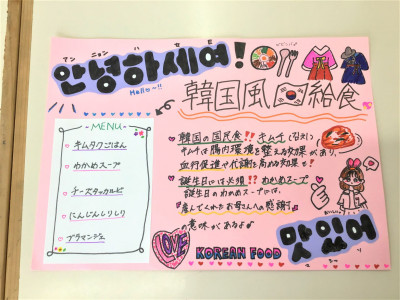 アンニョンハセヨ
안녕하세여!
Hello~!!
韓国風 給食
-MENU-
キムタクごはん
わかめスープ
チーズタッカルビ
にんじんしりしり
ブラマンジェ
韓国の国民食!! キムチ(김치)
キムチは腸内環境を整える効果があり、
血行促進や代謝を高める効果も!
誕生日には必須!? わかめスープ
誕生日のわかめスープには、
"産んでくれたお母さんへの感謝"
の意味があるよ
LOVE
KOREAN FOOD
맛있어